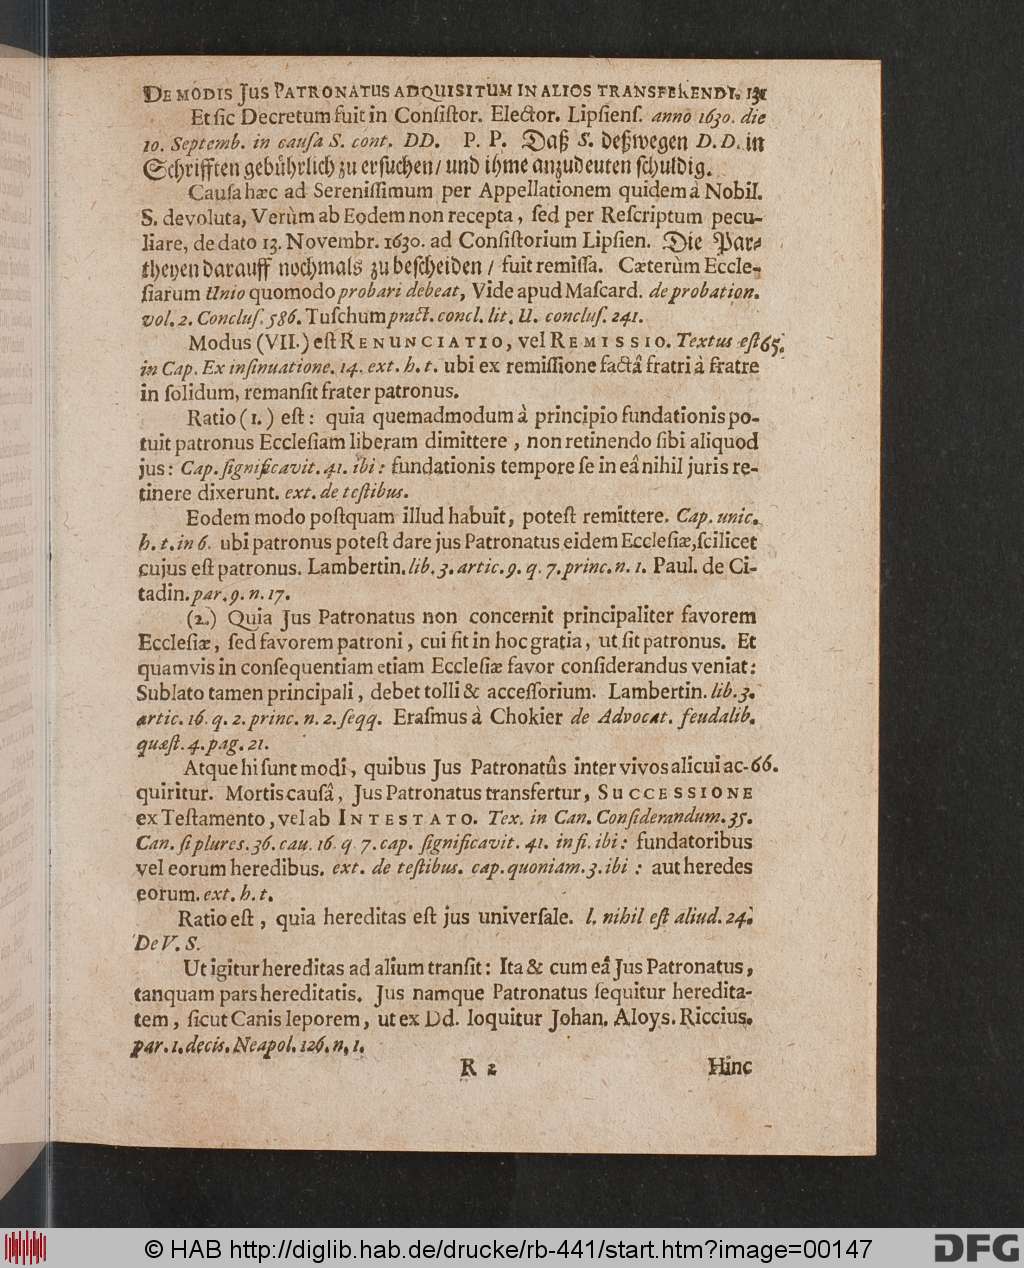 DE MODIS JUS PATRONATUS ADQUISITUM IN ALIOS TRANSFERENDI. 131
Et ſic Decretum fuit in Conſiſtor. Elector. Lipſienſ. anno 1630. die
10. Septemb. in cauſa S. cont. DD. P. P. Daß S. deßwegen D. D. in
Schrifften gebührlich zu erſuchen / und ihme anzudeuten ſchuldig.
Cauſa hæc ad Sereniſſimum per Appellationem quidem à Nobil.
S. devoluta, Verùm ab Eodem non recepta, ſed per Reſcriptum pecu-
liare, de dato 13. Novembr. 1630. ad Conſiſtorium Lipſien. Die Par-
theyen darauff nochmals zu beſcheiden / fuit remiſſa. Cæterùm Eccle-
ſiarum Unio quomodo probari debeat, Vide apud Maſcard. de probation.
vol. 2. Concluſ. 586. Tuſchum pract. concl. lit. U. concluſ. 241.
Modus (VII.) eſt RENUNCIATIO, vel REMISSIO. Textus eſt 65.
in Cap. Ex inſinuatione. 14. ext. h. t. ubi ex remiſſione factâ fratri à fratre
in ſolidum, remanſit frater patronus.
Ratio (1.) eſt: quia quemadmodum à principio fundationis po-
tuit patronus Eccleſiam liberam dimittere, non retinendo ſibi aliquod
jus: Cap. ſignificavit. 41. ibi: fundationis tempore ſe in eâ nihil juris re-
tinere dixerunt. ext. de teſtibus.
Eodem modo poſtquam illud habuit, poteſt remittere. Cap. unic.
h. t. in 6. ubi patronus poteſt dare jus Patronatus eidem Eccleſiæ, ſcilicet
cujus eſt patronus. Lambertin. lib. 3. artic. 9. q. 7. princ. n. 1. Paul. de Ci-
tadin. par. 9. n. 17.
(2.) Quia Jus Patronatus non concernit principaliter favorem
Eccleſiæ, ſed favorem patroni, cui fit in hoc gratia, ut ſit patronus. Et
quamvis in conſequentiam etiam Eccleſiæ favor conſiderandus veniat:
Sublato tamen principali, debet tolli & acceſſorium. Lambertin. lib. 3.
artic. 16. q. 2. princ. n. 2. ſeqq. Eraſmus à Chokier de Advocat. feudalib.
quæſt. 4. pag. 21.
Atque hi ſunt modi, quibus Jus Patronatûs inter vivos alicui ac- 66.
quiritur. Mortis cauſâ, Jus Patronatus transfertur, SUCCESSIONE
ex Teſtamento, vel ab INTESTATO. Tex. in Can. Conſiderandum. 35.
Can. ſi plures. 36. cau. 16. q. 7. cap. ſignificavit. 41. in fi. ibi: fundatoribus
vel eorum heredibus. ext. de teſtibus. cap. quoniam. 3. ibi: aut heredes
eorum. ext. h. t.
Ratio eſt, quia hereditas eſt jus univerſale. l. nihil eſt aliud. 24.
De V. S.
Ut igitur hereditas ad alium tranſit: Ita & cum eâ Jus Patronatus,
tanquam pars hereditatis. Jus namque Patronatus ſequitur heredita-
tem, ſicut Canis leporem, ut ex Dd. loquitur Johan. Aloys. Riccius.
par. 1. decis. Neapol. 126. n. 1.
R 2 Hinc
© HAB http://diglib.hab.de/drucke/rb-441/start.htm?image=00147 DFG